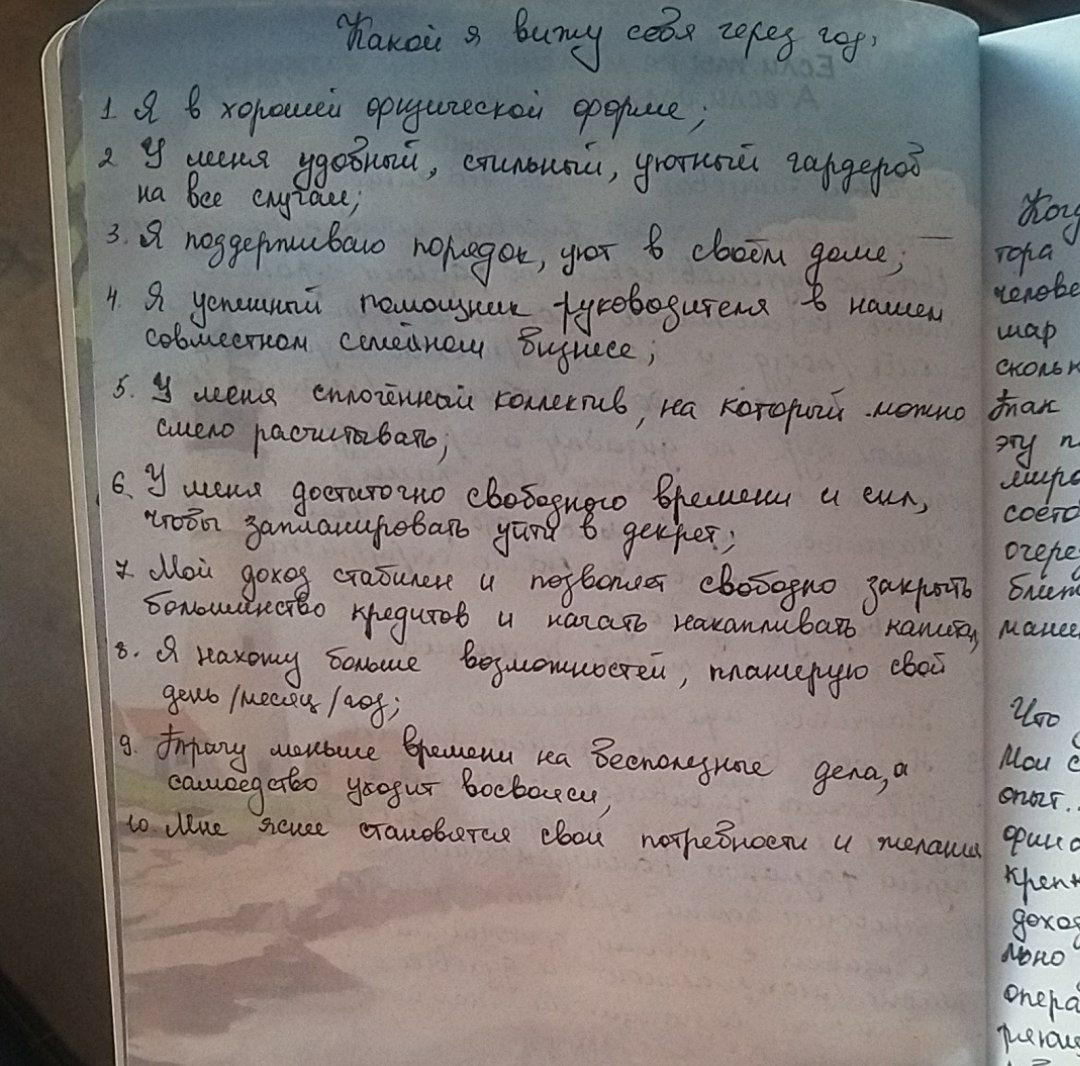 Какой я вижу себя через год,
1. Я в хорошей физической форме;
2. У меня удобный, стильный, уютный гардероб
на все случаи;
3. Я поддерживаю порядок, уют в своём доме;
4. Я успешный помощник руководителя в нашем
совместном семейном бизнесе;
5. У меня сплочённый коллектив, на который можно
смело расчитывать;
6. У меня достаточно свободного времени и сил,
чтобы запланировать уйти в декрет;
7. Мой доход стабилен и позволяет свободно закрыть
большинство кредитов и начать накапливать капитал,
8. Я нахожу больше возможностей, планерую свой
день/месяц/год;
9. Трачу меньше времени на бесполезные дела, а
самоедство уходит восвояси,
10. Мне яснее становятся свои потребности и желания
Когд
тора
человe
шар
скольк
так
эту п
миро
состо
очере
ближ
Что
Мои с
опыт.
фина
крепк
доход
льно
опера